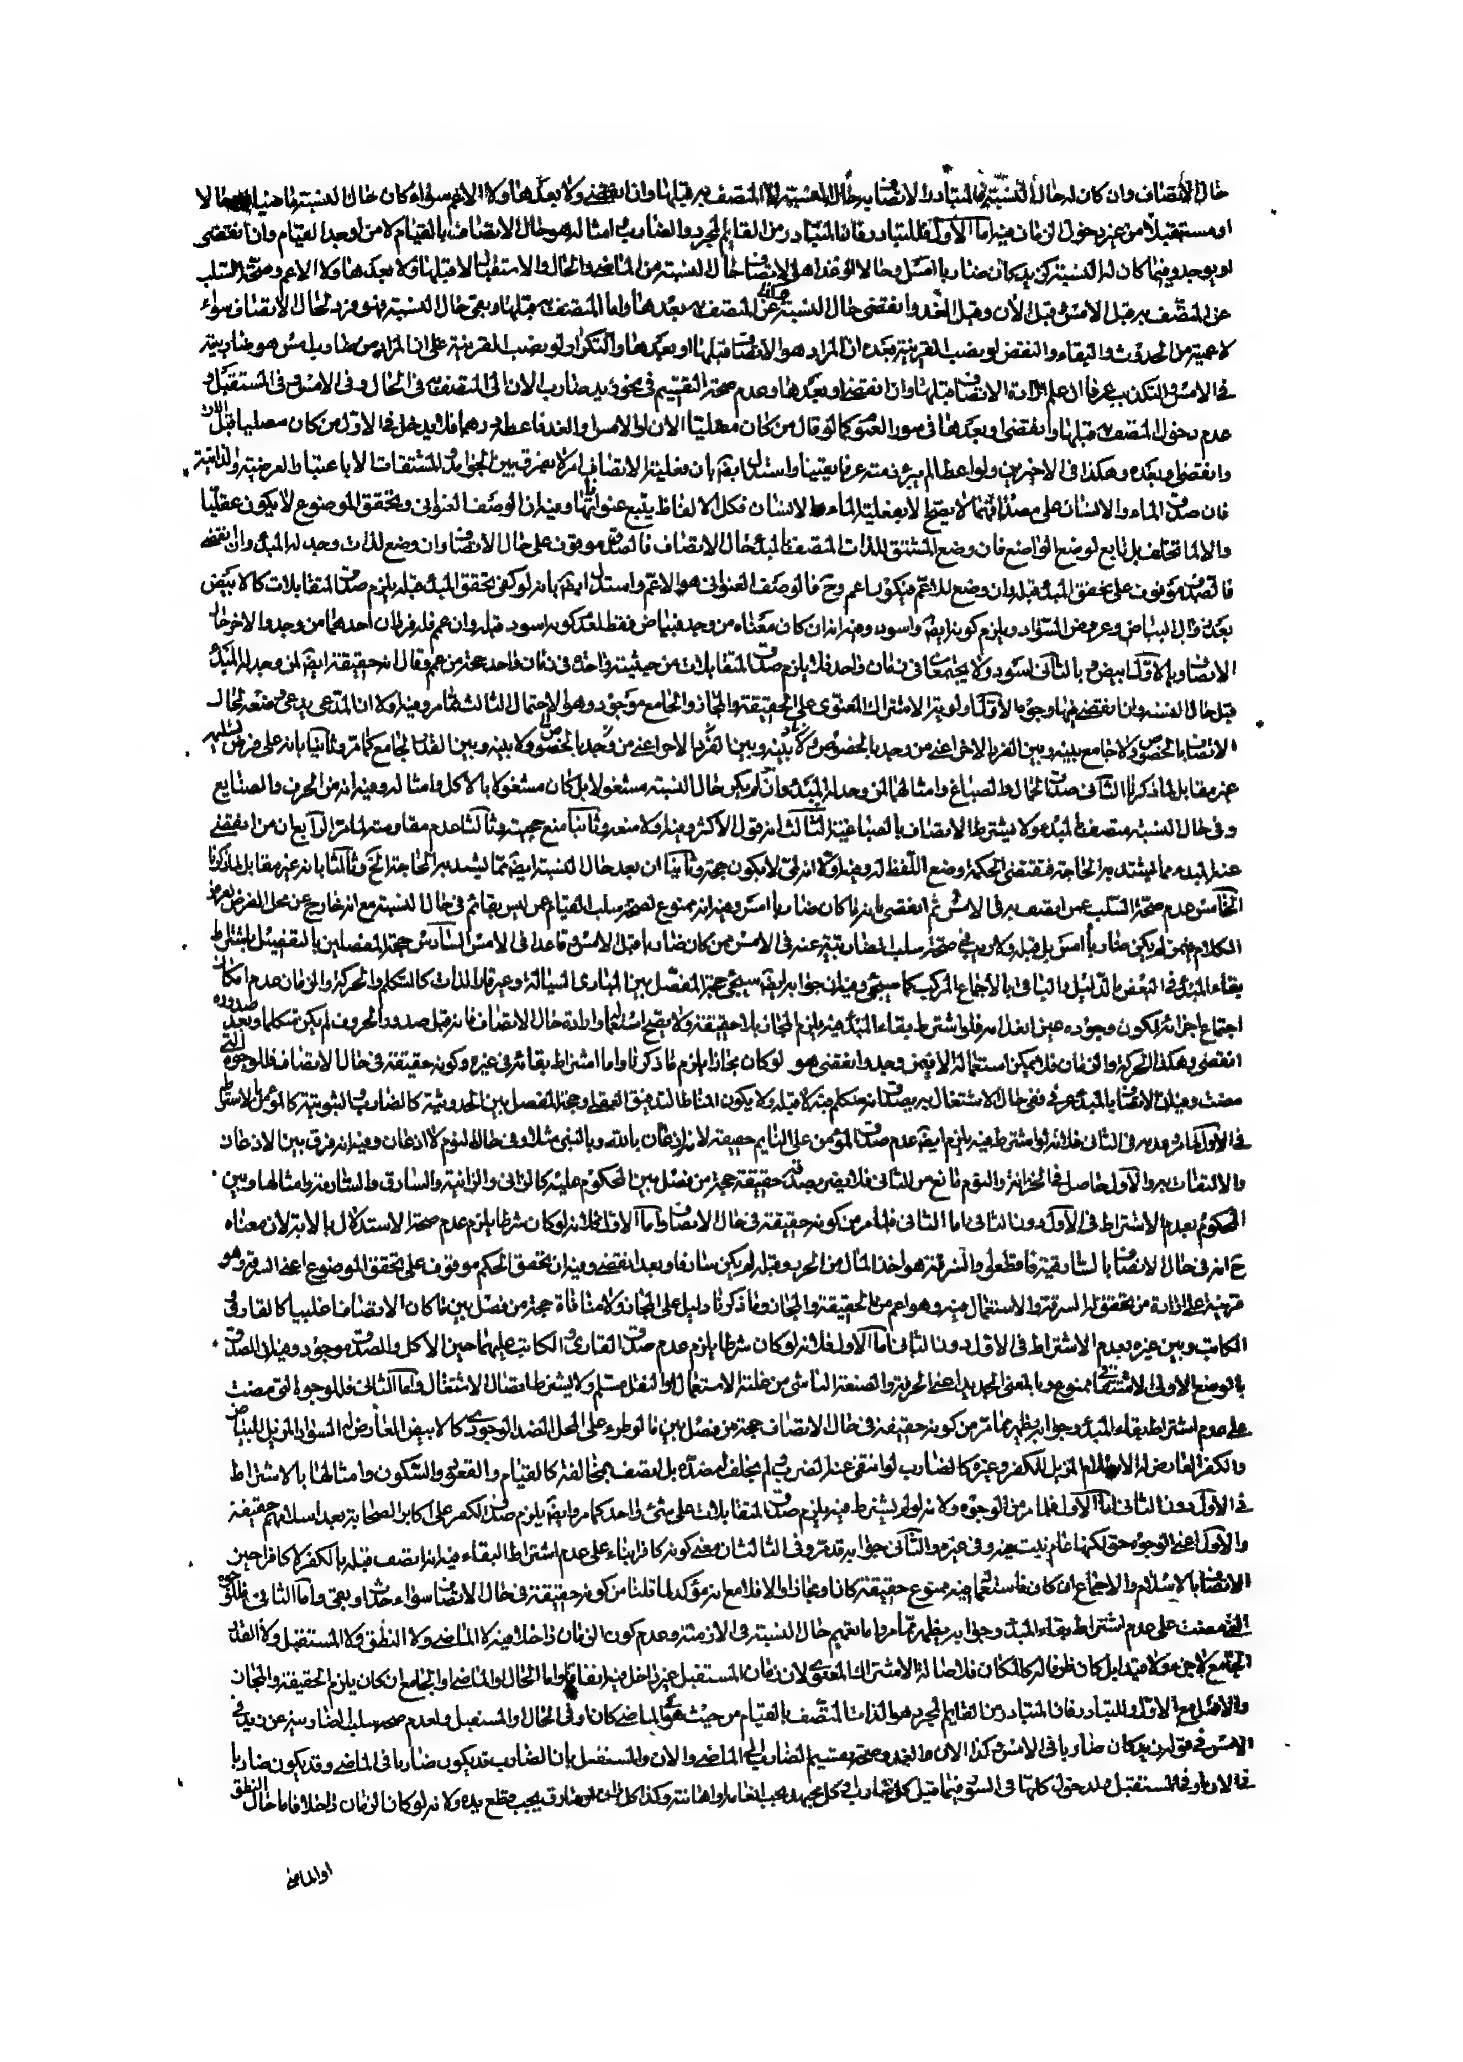 حال الاتصاف وان كان له حال النسبة فالمتبادر الاتصاف به حال النسبة لا المتصف به قبلها وان انقضى ولا بعدها ولا الاعم سواء كان حال النسبة ماضيا حالا
او مستقبلا من غير دخول الزمان فيه اما الاول فللتبادر فان المتبادر من القايم المجرد والضارب وامثاله هو حال الاتصاف بالقيام لا من اوجد القيام وان انقضى
او يوجد وفيما كان له النسبة كزيد كان ضاربا امس وحالا او غدا هو الاتصاف حال النسبة من الماضى والحال والاستقبال لا قبلها ولا بعدها ولا الاعم وصحة السلب
عن المتصف به قبل الامس وقبل الان وقبل الغد وانقضى حال النسبة عن المتصف به بعدها واما المتصف به قبلها وبقى حال النسبة فهو فرد لحال الاتصاف سواء
لاعمية من الحدوث والبقاء والنقض لو بضب القرينة فبعده ان المراد هو الاتصاف قبلها او بعدها والتكرار لو بضب القرينة على ان المراد من ضارب امس هو ضاربيته
فى الامس والتكذيب عرفا ان علم ارادة الاتصاف قبلها وان انقضى او بعدها وعدم صحة التقسيم فى نحو زيد ضارب الان الى المتصف به فى الحال وفى الامس وفى المستقبل و
عدم دخول المتصف به قبلها وانقضى او بعدها فى سور العموم كما لو قال من كان مصليا الان او الامس او الغد فاعطه درهما فلا يدخل فى الاول من كان مصليا قبل الان
وانقضى او بعده وهكذا فى الاخيرين ولو اعطاهم لم يبرء ذمته عرفا يقينا واستدل ايضا بان فعلية الاتصاف امر لا يفرق بين الجوامد والمشتقات الا باعتبار العرضية والذاتية
فان صدق الماء والانسان على مصداقهما لا يصح الا بفعلية الماء والانسان فكل الالفاظ يتبع عنوانها وفيه ان الوصف العنوانى وتحقق الموضوع لا يكون عقليا
والا لما تخلف بل تابع لوضع الواضع فان وضع المشتق للذات المتصف بالمبدء حال الاتصاف فالصدق موقوف على حال الاتصاف وان وضع لذات وجد له المبدء وان انقضى
فالصدق موقوف على تحقق المبدء قبله وان وضع للاعم فيكون اعم وح فالوصف العنوانى هو الاعم واستدل ايضا بانه لو كفى تحقق المبدء قبله يلزم صدق المتقابلات كالابيض
بعد زوال البياض وعروض السواد ويلزم كونه ابيض واسود وفيه انه ان كان معناه من وجد فبياض فقط لعدم كونه اسود قبله وان عم فله فردان احدهما من وجد والاخر حال
الاتصاف وبالاول ابيض وبالثانى اسود ولا يجتمعان فى زمان واحد فلا يلزم صدق المتقابلات من حيثية واحدة فى زمان واحد حجة من عم وقال انه حقيقة ايضا لمن وجد له المبدء
قبل حال النسبة وان انقضى فيها وجوه الاول اولوية الاشتراك المعنوى على الحقيقة والمجاز والجامع موجود وهو الاحتمال الثالث مما مر وفيه اولا ان المدعى يدعى وضعه لحال
الاتصاف بالخصوص ولا جامع بينه وبين الفرد الاخر اعنى من وجد بالخصوص
عنه مقابل لما ذكرنا الثانى صدق الحمال والصباغ وامثالهما لمن وجد له المبدء وان لم يكن حال النسبة مشغولا بل كان مشغولا بالاكل وامثاله وفيه انه من الحرف والصنايع
وفى حال النسبة متصف بالمبدء ولا يشترط الاتصاف بالصباغية الثالث انه قول الاكثر وفيه اولا منعه وثانيا منع حجيته وثالثا عدم مقاومته لما مر الرابع ان من انقضى
عنه المبدء مما يشتد به الحاجة فمقتضى الحكمة وضع اللفظ له وفيه اولا انه لا يكون حجة وثانيا ان بعد حال النسبة ايضا مما يشتد به الحاجة الخ وثالثا بانه غير مقابل لما ذكرنا
الخامس عدم صحة السلب عمن اتصف به فى الامس ثم انقضى بانه ما كان ضاربا امس وفيه انه ممنوع لصحة سلب القيام عمن ليس بقائم فى حال النسبة مع انه خارج عن محل الفرض لعموم
الكلام فيمن لم يكن ضاربا امس بل قبله ولا ريب فى صحة سلب الضاربية عنه فى الامس ممن كان ضاربا قبل الامس وقاعدا فى الامس السادس حجة المفصلين بالتفصيل باشتراط
بقاء المبدء فى البعض بالدليل والباقى بالاجماع المركب كما سيجئ وفيه ان جوابه ايضا سيجئ حجة المفصل بين المبادى السيالة وغير قار الذات كالتكلم والحركة والزمان عدم امكان
اجتماع اجزائه لكون وجوده عين انعدامه فلو اشترط بقاء المبدء فيه يلزم المجاز بلا حقيقة ولا يصح استعماله وارادة حال الاتصاف فانه قبل صدور الحروف لم يكن متكلما وبعد صدوره
انقضى وهكذا الحركة والزمان فلا يمكن استعماله الا فيمن وجد وانقضى هو لو كان مجازا يلزم ما ذكرنا واما اشتراط بقائه فى غيره وكونه حقيقة فى حال الاتصاف فللوجوه التى
مضت وفيه ان الاتصاف بالمبدء عرفى ففى حال الاشتغال به يصدق انه متكلم فيه لا قبله ولا يكون المناط التدقيق العقلى وحجة المفصل بين الحدوثية كالضارب والثبوتية كالمومن عدم الاشتراط
فى الاول كما مر وعدمه فى الثانى فلانه لو اشترط فيه يلزم ايضا عدم صدق المؤمن على النايم حقيقة لانه اذعان بالله وبالنبى مثلا وفى حالة النوم لا اذعان وفيه انه فرق بين الاذعان
والالتفات به والاول حاصل فى الخزانة والنوم مانع من الثانى فلا يضر بصدقه حقيقة حجة من فصل بين المحكوم عليه كالزانى والزانية والسارق والسارقة وامثالها وبين
المحكوم به بعدم الاشتراط فى الاول دون الثانى اما الثانى فلما مر من كونه حقيقة فى حال الاتصاف واما الاول فلانه لو كان شرطا يلزم عدم صحة الاستدلال بالاية لان معناه
ح انه فى حال الاتصاف بالسارقية فاقطعوا والسرقة هو اخذ المال من الحرز وقبله لم يكن سارقا وبعده انقضى وفيه ان تحقق الحكم موقوف على تحقق الموضوع اعنى السرقة وهو
قرينة على ارادة من تحقق له السرقة والاستعمال فيه وهو اعم من الحقيقة والمجاز وما ذكرنا دليل على المجاز ولا منافاة حجة من فصل بين ما كان الاتصاف اغلبيا كالقارى و
الكاتب وبين غيره بعدم الاشتراط فى الاول دون الثانى اما الاول فلانه لو كان شرطا يلزم عدم صدق القارى والكاتب عليهما حين الاكل والصدق موجود وفيه ان الصدق
بالوضع الاولى الاشتقاقى ممنوع وبالمعنى الجديد اعنى الحرفة والصنعة الناشى من غلبة الاستعمال او النقل مسلم ولا يشترط اتصال الاشتغال واما الثانى فللوجوه التى مضت
على عدم اشتراط بقاء المبدء وجوابه يظهر مما مر من كونه حقيقة فى حال الاتصاف حجة من فصل بين ما لو طرء على المحل الضد الوجودى كالابيض المعارض له السواد المزيل للبياض
والكفر العارض له الاسلام المزيل للكفر وغيره كالضارب لو انتفى عنه الضرب ولم يخلفه ضده بل اتصف بمخالفه كالقيام والقعود والسكون وامثالها بالاشتراط
فى الاول دون الثانى اما الاول فلما مر من الوجوه ولانه لو لم يشترط فيه يلزم صدق المتقابلات على شئ واحد كما مر وايضا يلزم صدق الكفر على اكابر الصحابة بعد اسلامهم حقيقة
والاول اعنى الوجوه حق لكنها عام ثبت فيه وفى غيره والثانى جوابه قد مر وفى الثالث ان معنى كونه كافرا بناء على عدم اشتراط البقاء فيه انه اتصف قبله بالكفر لا كافر حين
الاتصاف بالاسلام والاجماع ان كان فاستعماله فيه ممنوع حقيقة كان او مجازا والا فلا مع انه مؤكد لما قلنا من كونه حقيقة فى حال الاتصاف سواء حدث او بقى واما الثانى فللوجوه
التى مضت على عدم اشتراط بقاء المبدء وجوابه يظهر مما مر واما تعميم حال النسبة فى الازمنة وعدم كون الزمان داخلا فيه لا الماضى ولا النطق ولا المستقبل ولا القدر
الجامع لا جزء ولا قيدا بل كان ظرفا له كالمكان فلاصالة الاشتراك المعنوى لان زمان المستقبل غير داخل فيه اتفاقا واما الحال والماضى والجامع ان كان يلزم الحقيقة والمجاز
والاصل مع الاول وللتبادر فان المتبادر من القايم المجرد هو الذات المتصف بالقيام من حيث هو للماضى كان او فى الحال او المستقبل ولعدم صحة سلب الضاربية عن زيد فى
الامس فى قولنا زيد كان ضاربا فى الامس وكذا الان والغد وصحة تقسيم الضارب الى الماضى والان والمستقبل بان الضارب قد يكون ضاربا فى الماضى وقد يكون ضاربا
فى الان او فى المستقبل ولدخول كلها فى السور فيما قيل كل ضارب
ولانه لو كان الزمان داخلا فاما حال النطق
او الماضى